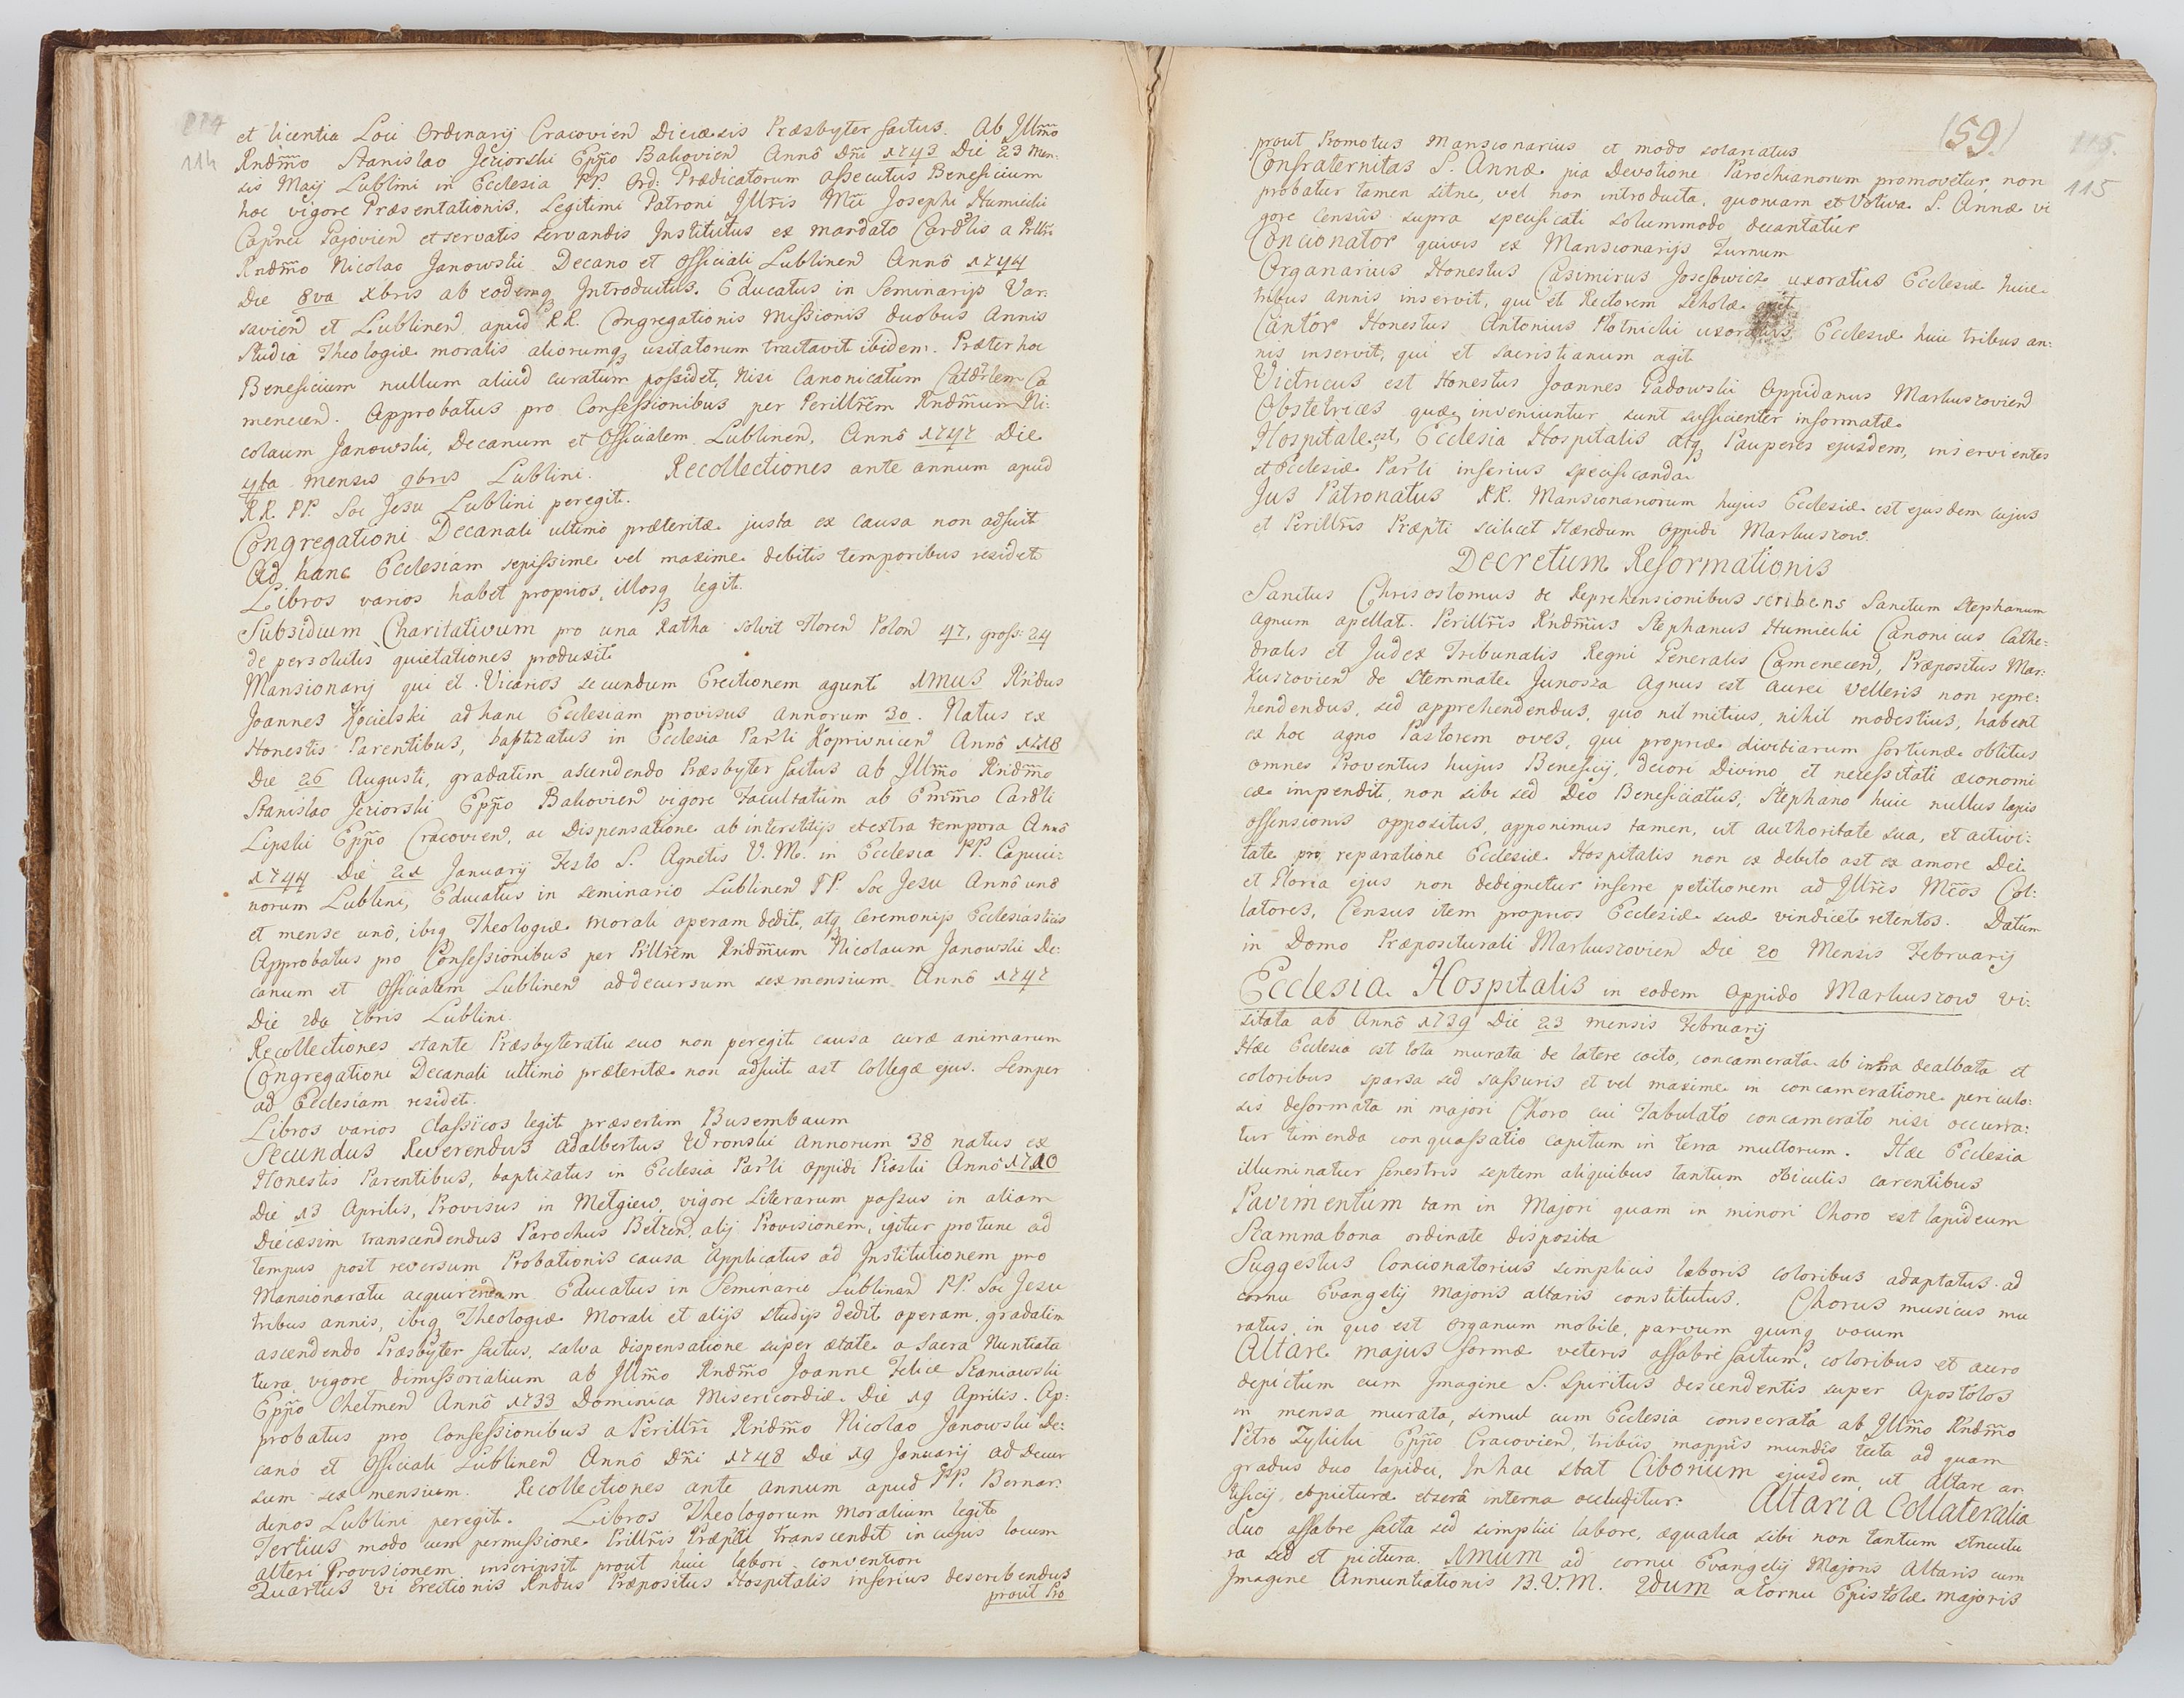 114
et licentia Loci Ordinarij Cracovien Diecæsis Præsbyter factus. Ab Jllm̃o
Rndm̃o Stanislao Jeziorski Epp̃o Bakovien Annô Dñi 1743 Die 23 Men:
sis Maij Lublini in Ecclesia PP. Ord: Prædicatorum assecutus Beneficium
hoc vigore Præsentationis, Legitimi Patroni Jllr̃is Mci Josephi Humiecki
Capnei Gajovien et servatis servandis Institutus ex mandato Cardlis a Prllri
Rndm̃o Nicolao Janowski Decano et Officiali Lublinen Annô 1744
Die 8va Xbris ab eodemq Introductus. Educatus in Seminarijs Var:
savien et Lublinen apud RR. Congregationis Missionis duobus Annis
Studia Theologiæ moralis aliorumq usitatorum tractavit ibidem. Præter hoc
Beneficium nullum aliud curatum possidet, Nisi Canonicatum Catdrlem Ca
menecen. Approbatus pro Confessionibus per Perillr̃em Rndm̃um Ni:
colaum Janowski, Decanum et Officialem Lublinen, Annô 1747 Die
4ta mensis 9bris Lublini. Recollectiones ante annum apud
RR. PP. Soc Jesu Lublini peregit.
Congregationi Decanali ultimô præteritæ justa ex causa non adfuit
Ad hanc Ecclesiam sepissime vel maxime debitis temporibus residet
Libros varios habet proprios, illosq legit.
Subsidium Charitativum pro una Ratha solvit Floren Polon 47, gross: 24
de persolutis quietationes produxit
Mansionarij qui et Vicarios secundum Erectionem agunt 1mus Rndus
Joannes Kocielski ad hanc Ecclesiam provisus annorum 30. Natus ex
Honestis Parentibus, baptizatus in Ecclesia Parli Koprisnicen Annô 1718
Die 26 Augusti, gradatim ascendendo Præsbyter factus ab Jllm̃o Rndm̃o
Stanislao Jeziorski Epp̃o Bakovien vigore Facultatum ab Emm̃o Cardli
Lipski Epp̃o Cracovien, ac Dispensatione ab interstitijs et extra tempora Annô
1744 Die 21 January Festo S. Agnetis V. M. in Ecclesia PP. Capuci:
norum Lublini, Educatus in seminario Lublinen PP. Soc Jesu Annô unô
et mense unô, ibiq Theologiæ Morali operam dedit, atq Ceremonijs Ecclesiasticis
Approbatus pro Confessionibus per Prllr̃em Rndm̃um Nicolaum Janowski De:
canum et Officialem Lublinen ad decursum sex mensium Annô 1747
Die 2da 7bris Lublini.
Recollectiones stante Præsbyteratu suo non peregit causa curæ animarum
Congregationi Decanali ultimô præteritæ non adfuit ast Collegæ ejus. Semper
ad Ecclesiam residet.
Libros varios Classicos legit præsertim Busembaum
Secundus Reverendus Adalbertus Wronski Annorum 38 natus ex
Honestis Parentibus, baptizatus in Ecclesia Parli oppidi Piaski Annô 1710
Die 13 Aprilis, Provisus in Metgiew, vigore Literarum passus in aliam
Diecæsim transcendendus Parochus Betzen, alij Provisionem, igitur pro tunc ad
tempus post reversum Probationis causa Applicatus ad Institutionem pro
Mansionaratu acquirendam Educatus in Seminario Lublinen PP. Soc Jesu
tribus annis, ibiq Theologiæ Morali et alijs studijs dedit operam, gradatim
ascendendo Præsbyter factus, salva dispensatione super ætate a Sacra Nuntiata
tura vigore dimissorialium ab Jllm̃o Rndm̃o Joanne Felice Szaniawski
Epp̃o Chelmen Annô 1733 Dominica Misericordiæ Die 19 Aprilis. Ap:
probatus pro Confessionibus a Perillr̃i Rndm̃o Nicolao Janowski De:
canô et Officiali Lublinen Annô Dñi 1748 Die 19 Januarij ad Decur
sum sex mensium. Recollectiones ante annum apud PP. Bernar:
dinos Lublini peregit. Libros Theologorum Moralium legit
Tertius modo cum permissione Prillr̃is Præpti transcendit in cujus locum
alteri Provisionem inscripsit prout huic labori conventiori
Quartus vi Erectionis Rndus Præpositus Hospitalis inferius describendus
prout Pro
(59.)
115.
115
prout Promotus Mansionarius et modo solariatus
Confraternitas S. Annæ pia Devotione Parochianorum promovetur, non
probatur tamen sitne, vel non introducta, quoniam et Votiva S. Annæ vi
gore Census supra specificati solummodo decantatur
Concionator quivis ex Mansionarijs Turnum
Organarius Honestus Casimirus Josefowicz uxoratus Ecclesiæ huic
tribus annis inservit, qui et Rectorem scholæ agit
Cantor Honestus Antonius Plotnicki uxoratus Ecclesiæ huic tribus an:
nis inservit, qui et sacristianum agit
Victricus est Honestus Joannes Padowski Oppidanus Markuszovien
Obstetrices quæ inveniuntur sunt sufficienter informatæ
Hospitale est, Ecclesia Hospitalis atq Pauperes ejusdem, inservientes
et Ecclesiæ Parli inferius specificanda
Jus Patronatus RR. Mansionariorum hujus Ecclesiæ est ejusdem cujus
et Perillr̃is Præpti scilicet Hæredum Oppidi Markuszow.
Decretum Reformationis
Sanctus Chrisostomus de Reprehensionibus scribens Sanctum Stephanum
Agnum apellat. Perillr̃is Rndm̃us Stephanus Humiecki Canonicus Cathe:
dralis et Judex Tribunalis Regni Generalis Camenecen, Præpositus Mar:
kuszovien de Stemmate Junosza Agnus est aurei Velleris non repre:
hendendus, sed apprehendendus, quo nil mitius, nihil modestius, habent
ex hoc agno Pastorem oves, qui propriæ divitiarum fortunæ oblitus
omnes Proventus hujus Beneficij, decori Divino et necessitati œconomi
cæ impendit, non sibi sed Deo Beneficiatus, Stephano huic nullus lapis
offensionis oppositus, apponimus tamen, ut Authoritate sua, et activi:
tate pro reparatione Ecclesiæ Hospitalis non ex debito ast ex amore Dei
et Gloria ejus non dedignetur inferre petitionem ad Jllr̃es Mcos Col:
latores, Census item proprios Ecclesiæ suæ vindicet retentos. Datum
in Domo Præpositurali Markuszovien Die 20 Mensis Februarij
Ecclesia Hospitalis in eodem Oppido Markuszow vi:
sitata ab Annô 1739 Die 23 mensis Februarij
Hæc Ecclesia est tota murata de latere cocto, concamerata ab intra dealbata et
coloribus sparsa sed fassuris et vel maxime in concameratione periculo:
sis deformata in majori Choro cui Tabulato concamerato nisi occurra:
tur timenda conquassatio capitum in terra multorum. Hæc Ecclesia
illuminatur fenestris septem aliquibus tantum obiculis carentibus
Pavimentum tam in Majori quam in minori Choro est lapideum
Scamna bona ordinate disposita
Suggestus Concionatorius simplicis laboris coloribus adaptatus ad
cornu Evangelij Majoris altaris constitutus. Chorus musicus mu
ratus, in quo est Organum mobile, parvum quinq vocum
Altare majus formæ veteris affabre factum, coloribus et auro
depictum cum Jmagine S. Spiritus descendentis super Apostolos
in mensa murata, simul cum Ecclesia consecrata ab Jllm̃o Rndm̃o
Petro Tylicki Epp̃o Cracovien, tribus mappis mundis tecta ad quam
gradus duo lapidei, In hac stat Ciborium ejusdem, ut Altare ar
tificij, et picturæ et serâ interna occluditur. Altaria Collateralia
duo affabre facta sed simplici labore, æqualia sibi non tantum structu
ra sed et pictura. 1mum ad cornu Evangelij Majoris Altaris cum
Jmagine Annuntiationis B.V.M. 2dum a Cornu Epistolæ majoris